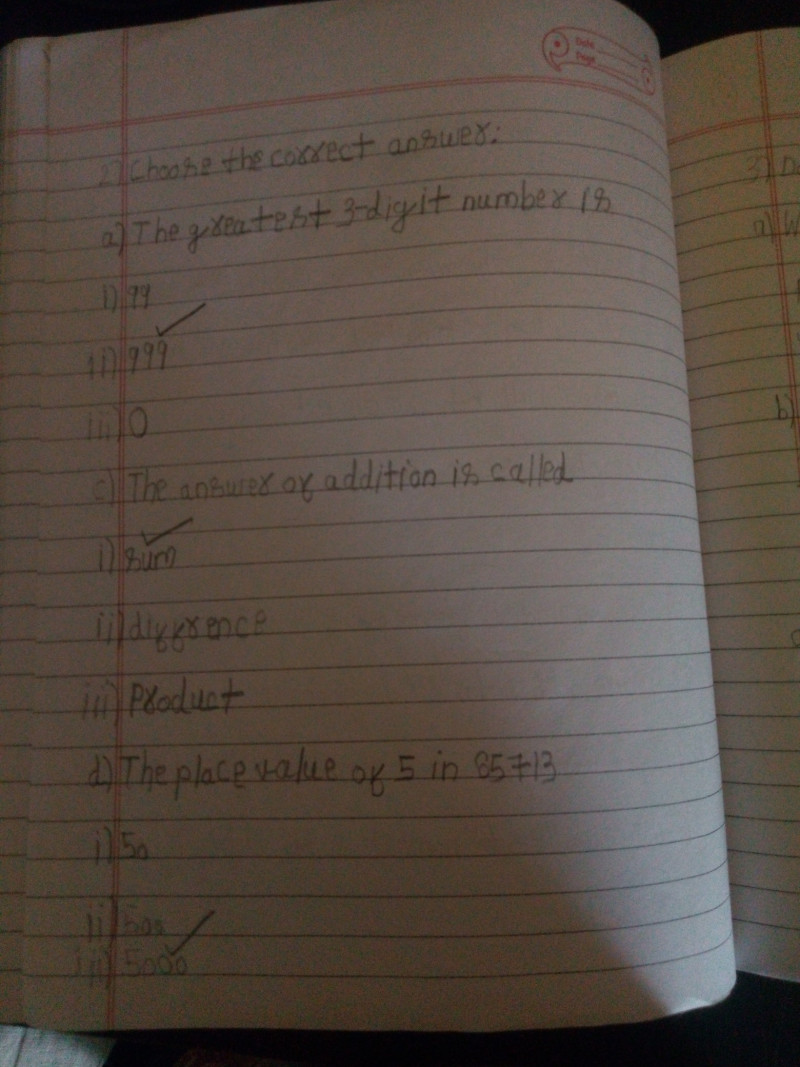 Date
Page
2) Choose the correct answer:
a) The greatest 3-digit number is
i) 99
ii) 999
iii) 0
c) The answer of addition is called
i) sum
ii) diffrence
iii) Product
d) The place value of 5 in 85713
i) 50
ii) 500
iii) 5000
3)
a) W
b)